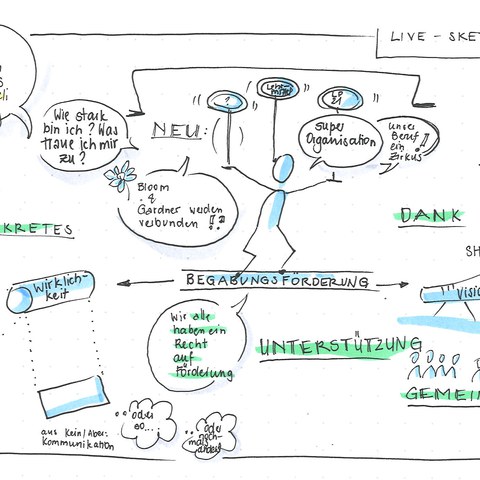 LIVE - SKE
Wie stark
bin ich? Was
traue ich mir
zu?
NEU:
?
Lehr-
mittel
LP
21
super
Organisation
unser
Beruf
ein
Zirkus!!
Bloom
&
Gardner werden
verbunden !?
KRETES
DANK
SH
Wirklich-
keit
BEGABUNGSFÖRDERUNG
Visio
Wir alle
haben ein
Recht
auf
Förderung
UNTERSTÜTZUNG
GEMEIN
aus Kein/Aber:
Kommunikation
oder
so...
oder
noch-
mals
anders!